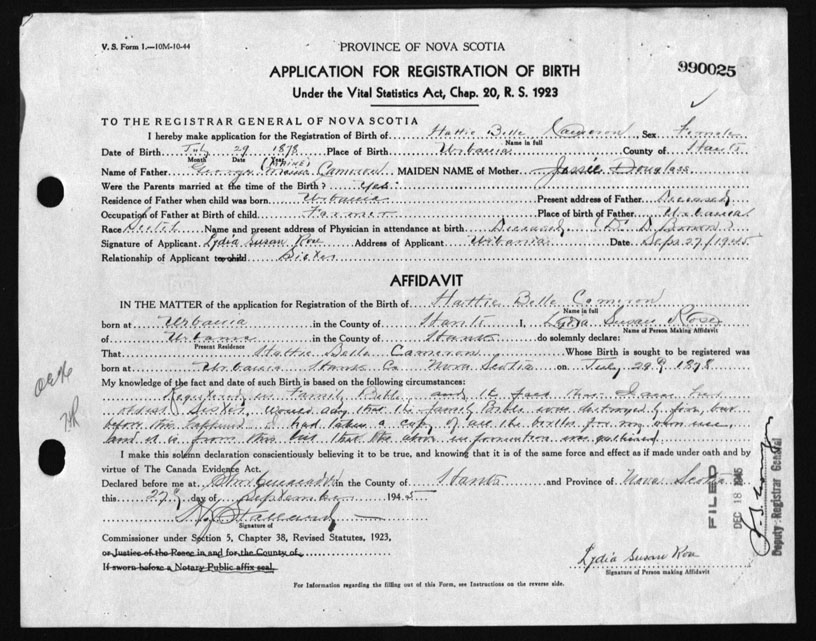 V. S. Form 1.—10M-10-44
PROVINCE OF NOVA SCOTIA
990025
APPLICATION FOR REGISTRATION OF BIRTH
Under the Vital Statistics Act, Chap. 20, R. S. 1923
TO THE REGISTRAR GENERAL OF NOVA SCOTIA
I hereby make application for the Registration of Birth of Hattie Belle Cameron Sex Female
Name in full
Date of Birth July 29 1878 Place of Birth Urbania County of Hants
Month Date
Name of Father George Cameron MAIDEN NAME of Mother Jessie Douglas
Were the Parents married at the time of the Birth? Yes.
Residence of Father when child was born Urbania Present address of Father Deceased
Occupation of Father at Birth of child Farmer Place of birth of Father Urbania
Race Scotch Name and present address of Physician in attendance at birth Deceased Dr. D.
Signature of Applicant Lydia Susan Rose Address of Applicant Urbania Date Sept 27/1945
Relationship of Applicant to child Sister
AFFIDAVIT
IN THE MATTER of the application for Registration of the Birth of Hattie Belle Cameron
Name in full
born at Urbania in the County of Hants I, Lydia Susan Rose
Name of Person Making Affidavit
of Urbania in the County of Hants do solemnly declare:
Present Residence
That Hattie Belle Cameron Whose Birth is sought to be registered was
born at Urbania Hants Co Nova Scotia on July 29 1878
My knowledge of the fact and date of such Birth is based on the following circumstances:
Registered in Family Bible and the fact that I am her
oldest Sister. Would say that the family Bible was destroyed by fire, but
before this happened I had taken a copy of all the births for my own use,
and it is from this list that the above information was gathered.
I make this solemn declaration conscientiously believing it to be true, and knowing that it is of the same force and effect as if made under oath and by
virtue of The Canada Evidence Act.
Declared before me at in the County of Hants and Province of Nova Scotia
this 27 day of September 1945
Signature of
Commissioner under Section 5, Chapter 38, Revised Statutes, 1923,
or Justice of the Peace in and for the County of
If sworn before a Notary Public affix seal.
Lydia Susan Rose
Signature of Person making Affidavit
For Information regarding the filling out of this Form, see Instructions on the reverse side.
FILED
DEC 18 1945
Deputy Registrar General